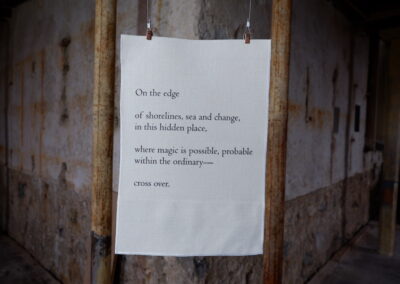 On the edge
of shorelines, sea and change,
in this hidden place,
where magic is possible, probable
within the ordinary—
cross over.